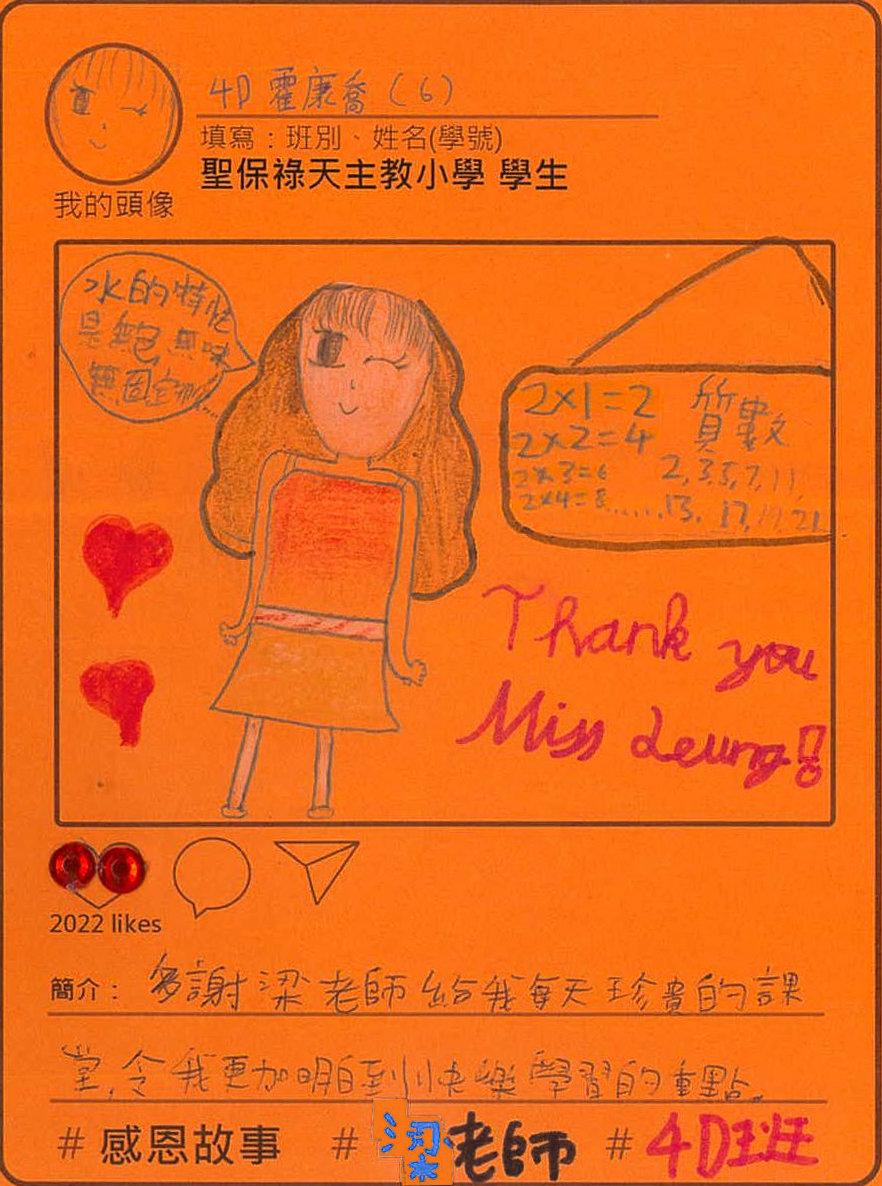 4D 霍康喬（6）
填寫：班別、姓名(學號)
聖保祿天主教小學 學生
我的頭像
水的特性
是無味
無固定
2x1=2
2x2=4
2x3=6
2x4=8......
質數
2,3,5,7,11,
13, 17,19,21
Thank you
Miss Leung!
2022 likes
簡介： 多謝梁老師給我每天珍貴的課
堂,令我更加明白到快樂學習的重點。
# 感恩故事 # 梁老師 # 4D班